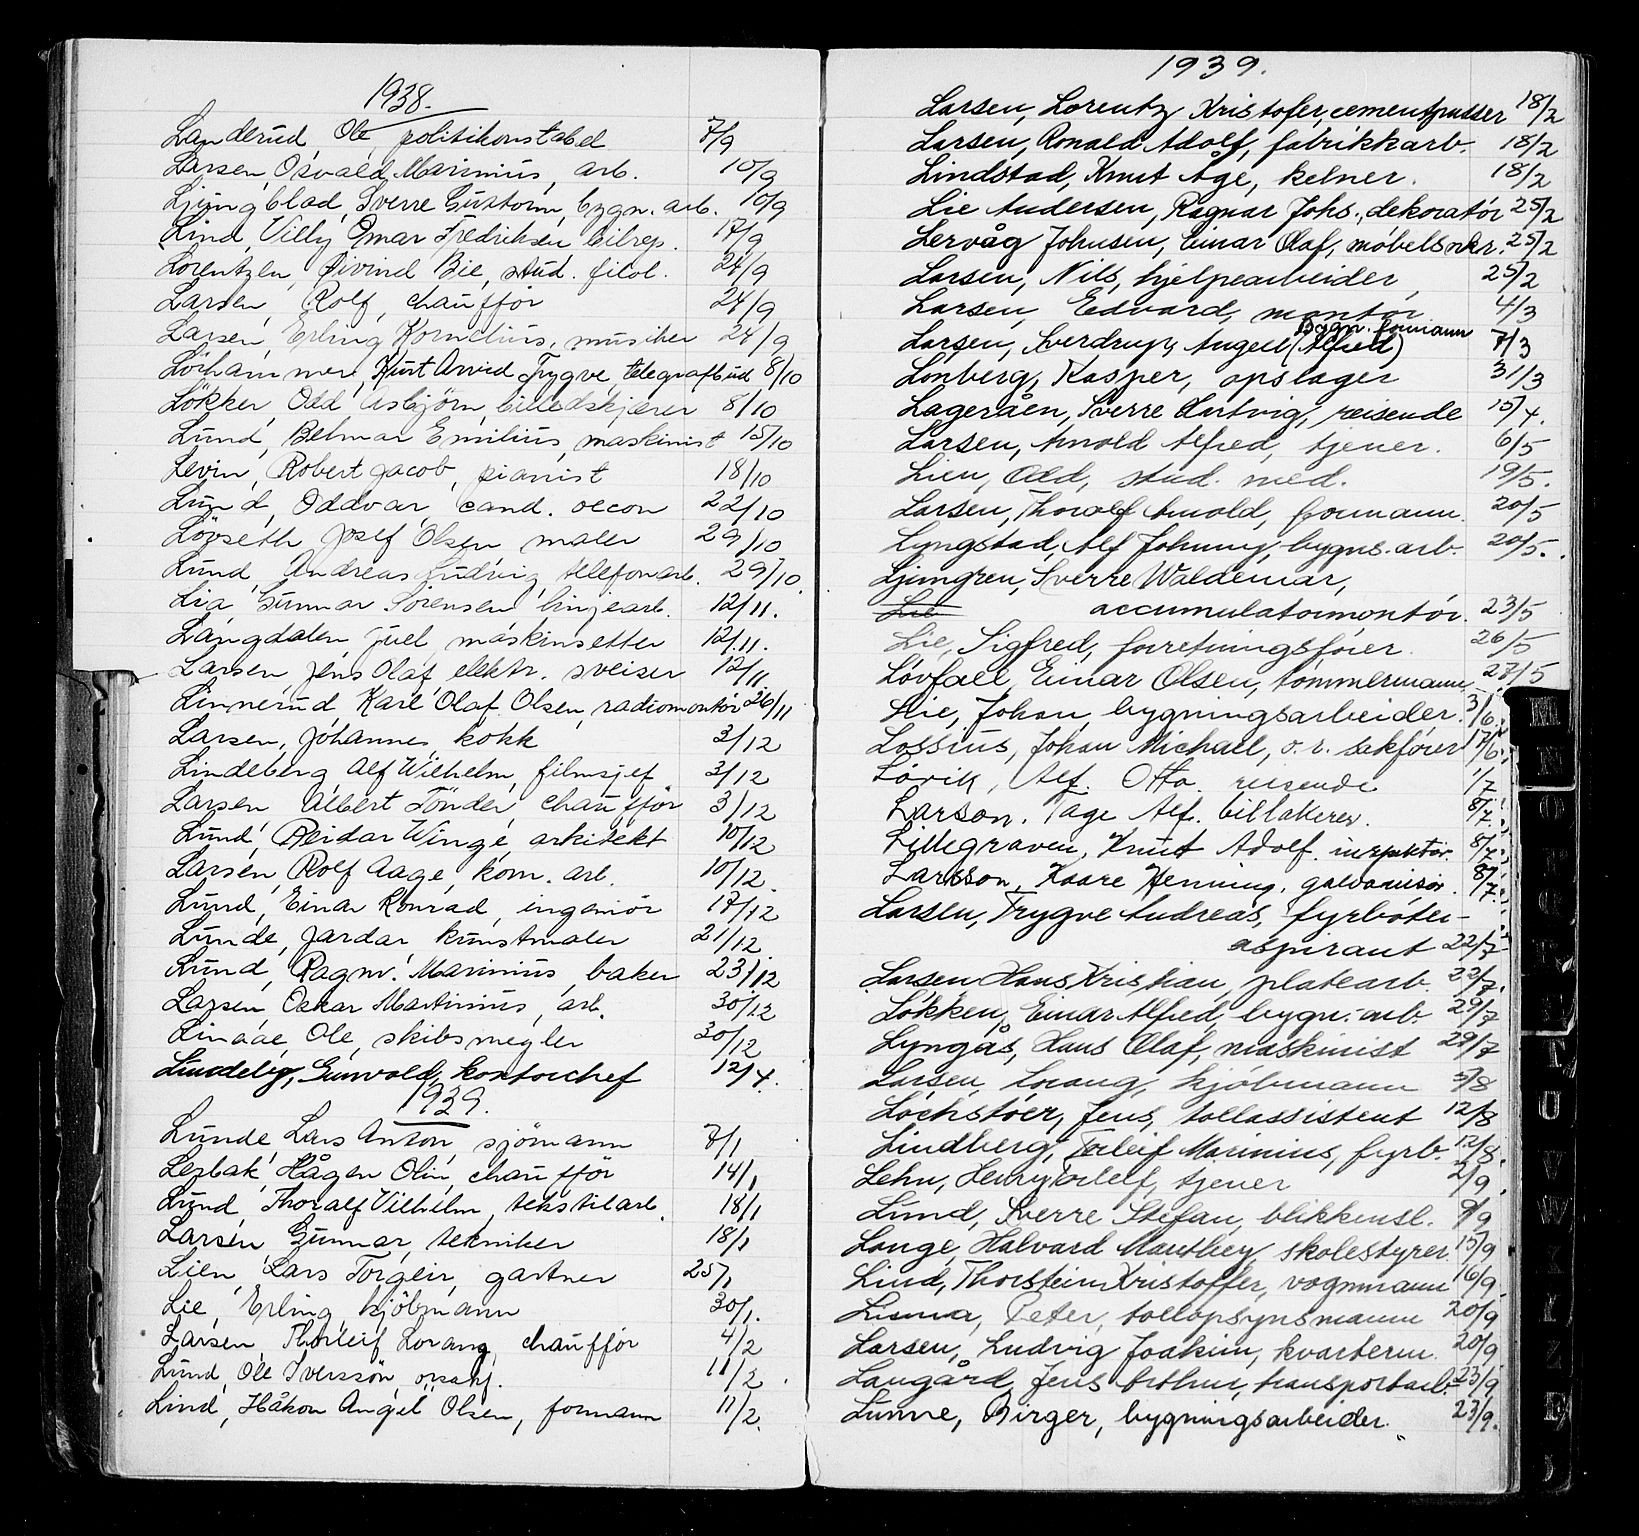 1938.
Landerud, Ole politikonstabel 7/9
Larsen, Osvald Marinius, arb. 10/9
Ljungblad, Sverre Gustorm, bygn. arb. 10/9
Lind, Villy Omar Fredriksen bilrep. 17/9
Lorentzen, Øivind Bie, stud. filol. 24/9
Larsen, Rolf, chaufför 24/9
Larsen, Erling Kornelius, musiker 24/9
Löchammer, Kurt Arvid Trygve, telegrafbud 8/10
Lökker, Odd Asbjörn, billedskjærer 8/10
Lund, Belmar Emilius, maskinist 15/10
Levin, Robert Jacob, pianist 18/10
Lund, Oddvar, cand. oecon 22/10
Lövseth Josef Olsen, maler 29/10
Lund, Andreas Ludvig, telefonarb. 29/10
Lia Gunnar Sörensen linjearb. 12/11.
Langdalen, Juel maskinsetter 12/11.
Larsen Jens Olaf, elektr. sveiser 12/11
Linnerud Karl Olaf Olsen, radiomontör 26/11
Larsen, Johannes, kokk 3/12
Lindeberg, Alf Wilhelm, filmsjef 3/12
Larsen, Albert Tönder, chaufför 3/12
Lund, Reidar Winge, arkitekt 10/12
Larsen, Rolf Aage, kom. arb. 10/12.
Lund, Einar Konrad, ingeniör 17/12
Lunde, Jardar, kunstmaler 21/12
Lund, Ragnv. Marinius, baker 23/12
Larsen, Oskar Martinius, arb. 30/12
Linaae, Ole, skibsmegler 30/12
Lindeby, Gunvald, kontorchef 12/4.
1939.
Lunde, Lars Anton, sjömann 7/1
Lerbak, Hågen Olin, chaufför 14/1
Lund, Thoralf Vilhelm, tekstilarb. 18/1
Larsen, Gunnar, tekniker 18/1
Lien, Lars Torgeir, gartner 25/1
Lie, Erling, kjöbmann 30/1.
Larsen, Thorleif Lorang, chaufför 4/2
Lund, Ole Iversson, 11/2.
Lind, Håkon Angel Olsen, formann 11/2.
1939.
Larsen, Lorentz Kristofer, cementpusser 18/2
Larsen, Ronald Adolf, fabrikkarb. 18/2
Lindstad, Knut Åge, kelner. 18/2
Lie Andersen, Ragnar Johs., dekoratør 25/2
Lervåg Johnsen, Einar Olaf, møbelsnekr. 25/2
Larsen, Nils, hjelpearbeider, 25/2
Larsen, Edvard, montør 4/3
Bygn. formann
Larsen, Sverdrup, Angell (Alfred) 7/3
Lønberg, Kasper, opslager 31/3
Lageråen, Sverre Hartvig, reisende 15/4.
Larsen, Arnold Alfred, tjener. 6/5
Lien, Odd, stud. med. 19/5.
Larsen, Thoralf Arnold, formann. 20/5
Lyngstad, Alf Johnny, bygns. arb. 20/5.
Ljungren, Sverre Waldemar,
Lie accumulatormontør. 23/5
Lie, Sigfred, forretningsfører. 26/5
Løvfall, Einar Olsen, tømmermann. 27/5
Lie, Johan, bygningsarbeider. 3/6.
Lossius, Johan Michael, o.r. sakfører 17/6.
Løvik, Alf. Otto. reisende 1/7
Larson. Tage Alf. billakerer. 8/7.
Lillegraven, Knut Adolf. inspektør. 8/7.
Larsson, Kaare Henning. galvanisør. 8/7.
Larsen, Trygve Andreas, fyrbøter-
aspirant 22/7
Larsen Hans Kristian, platearb. 22/7.
Løkken, Einar Alfred, bygn. arb. 29/7
Lyngås, Hans Olaf, maskinist 29/7
Larsen, Lorang, kjøbmann 5/8
Lochstøer, Jens, tollassistent 12/8
Lindberg, Torleif Marinius, fyrb. 12/8.
Lehn, Henry Detlef, tjener 2/9.
Lund, Sverre Stefan, blikkensl. 9/9
Lange, Halvard Manthey, skolestyrer 15/9
Lind, Thorstein Kristoffer, vognmann 16/9.
Peter, tollopsynsmann 20/9
Larsen, Ludvig Joakim, kvarterm. 20/9.
Langård, Jens Arthur, transportarb. 23/9.
Lunne, Birger, bygningsarbeider. 23/9.
M
N
O
P
T
U
V
W
Z